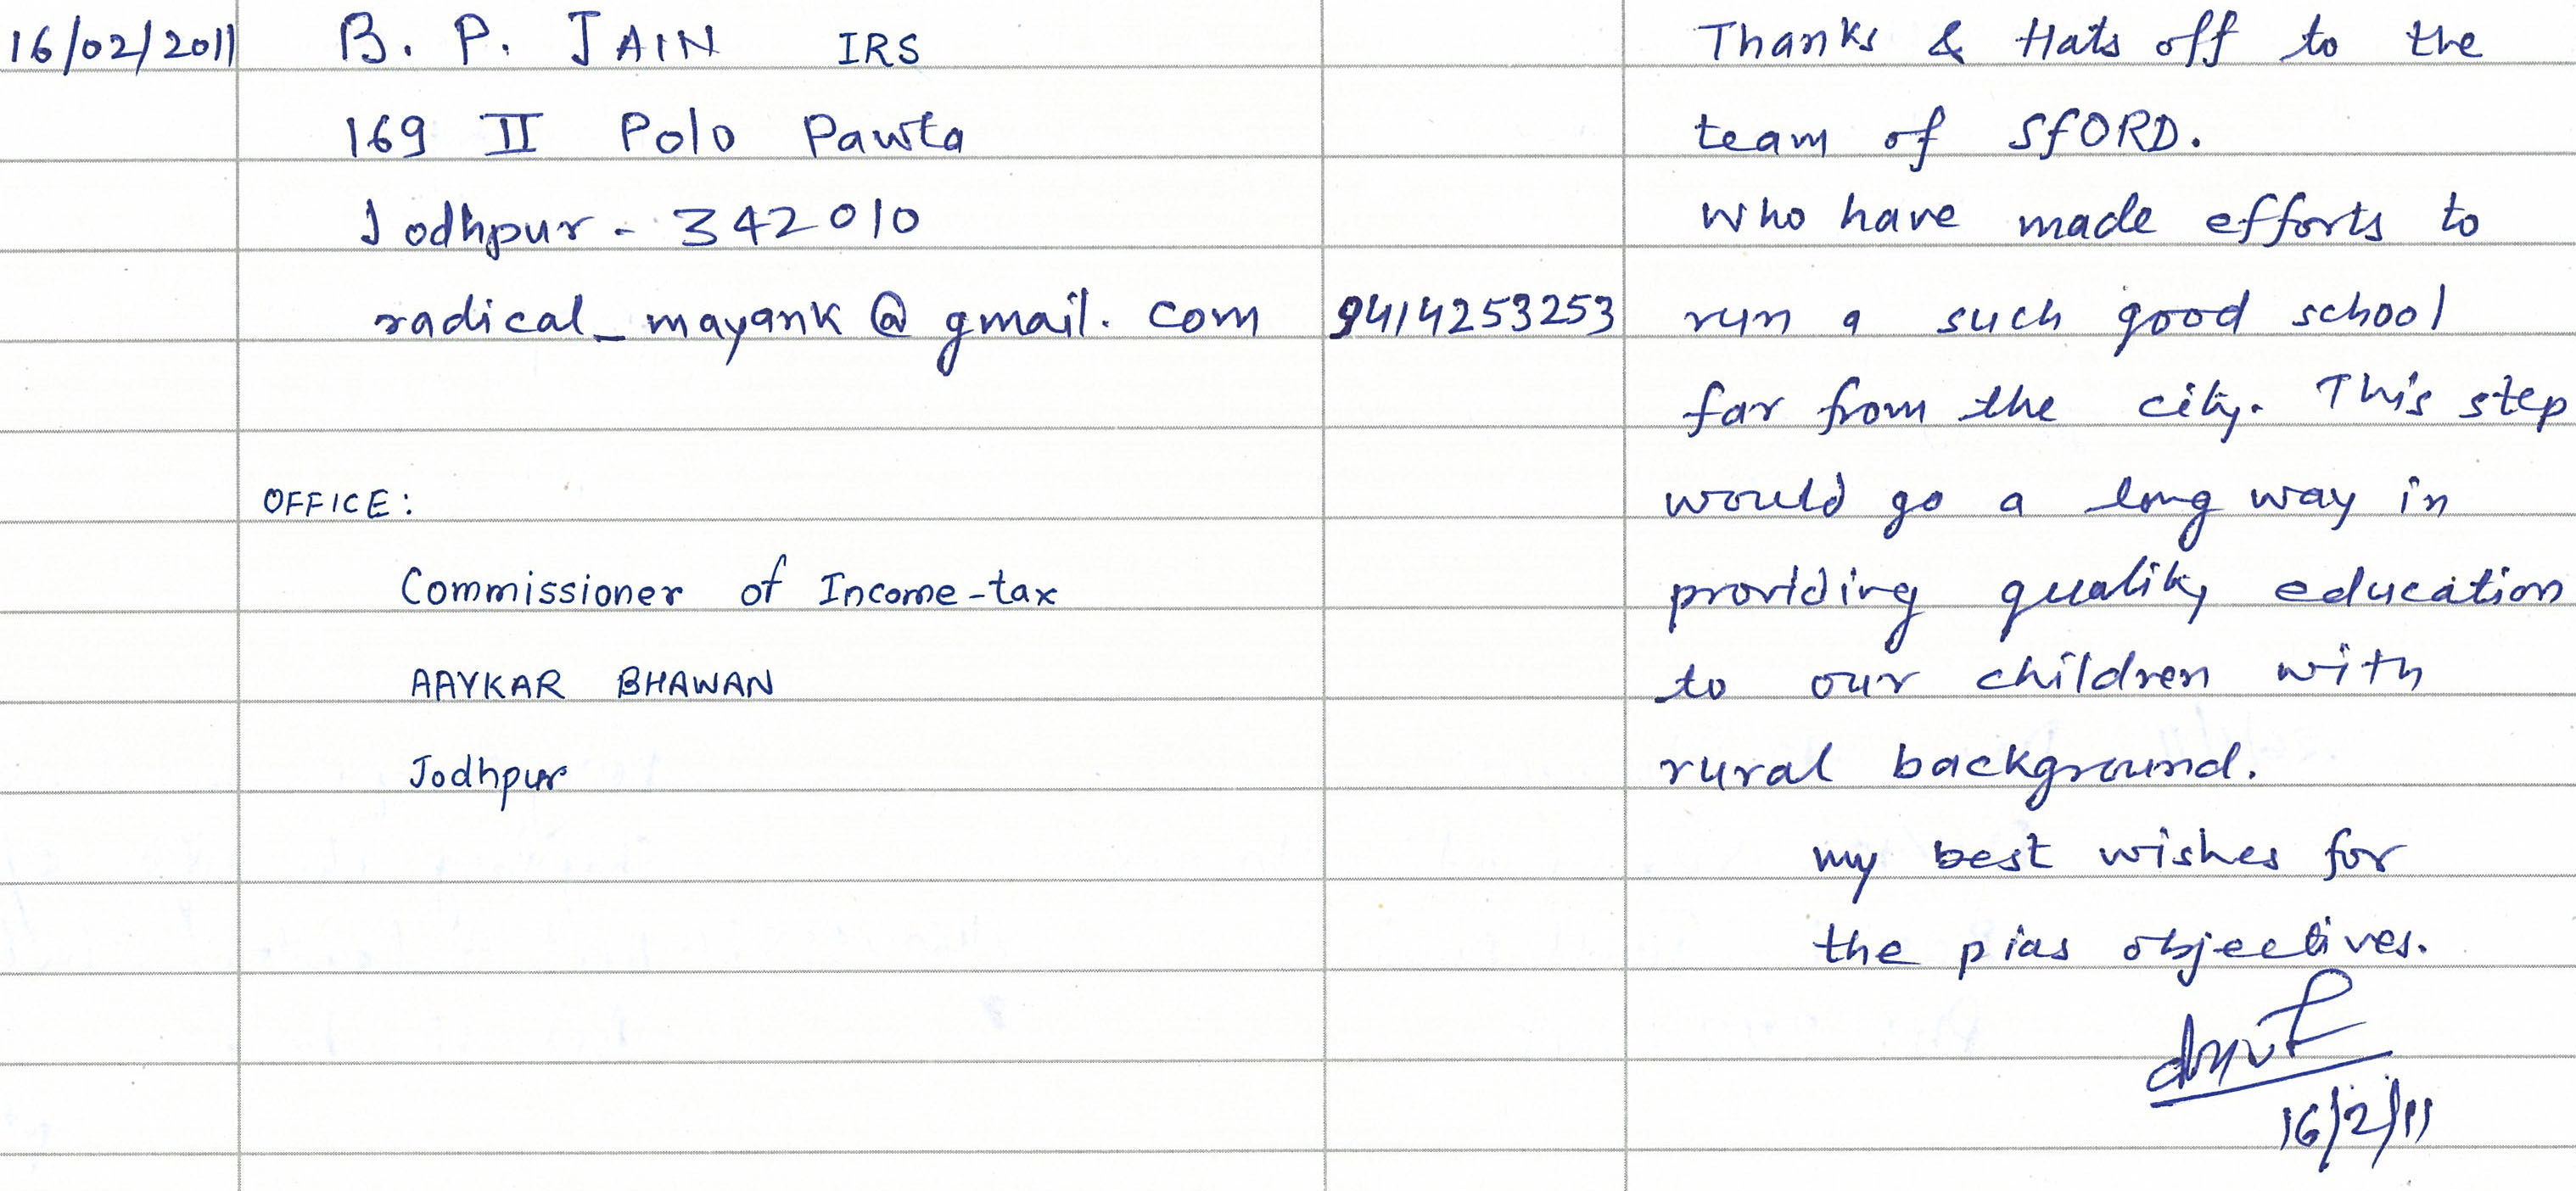 16/02/2011
B. P. JAIN IRS
169 II Polo Pawta
Jodhpur - 342010
radical_mayank@gmail.com
9414253253
OFFICE:
Commissioner of Income-tax
AAYKAR BHAWAN
Jodhpur
Thanks & Hats off to the
team of SfORD.
who have made efforts to
run a such good school
far from the city. This step
would go a long way in
providing quality education
to our children with
rural background.
my best wishes for
the pias objectives.
16/2/11